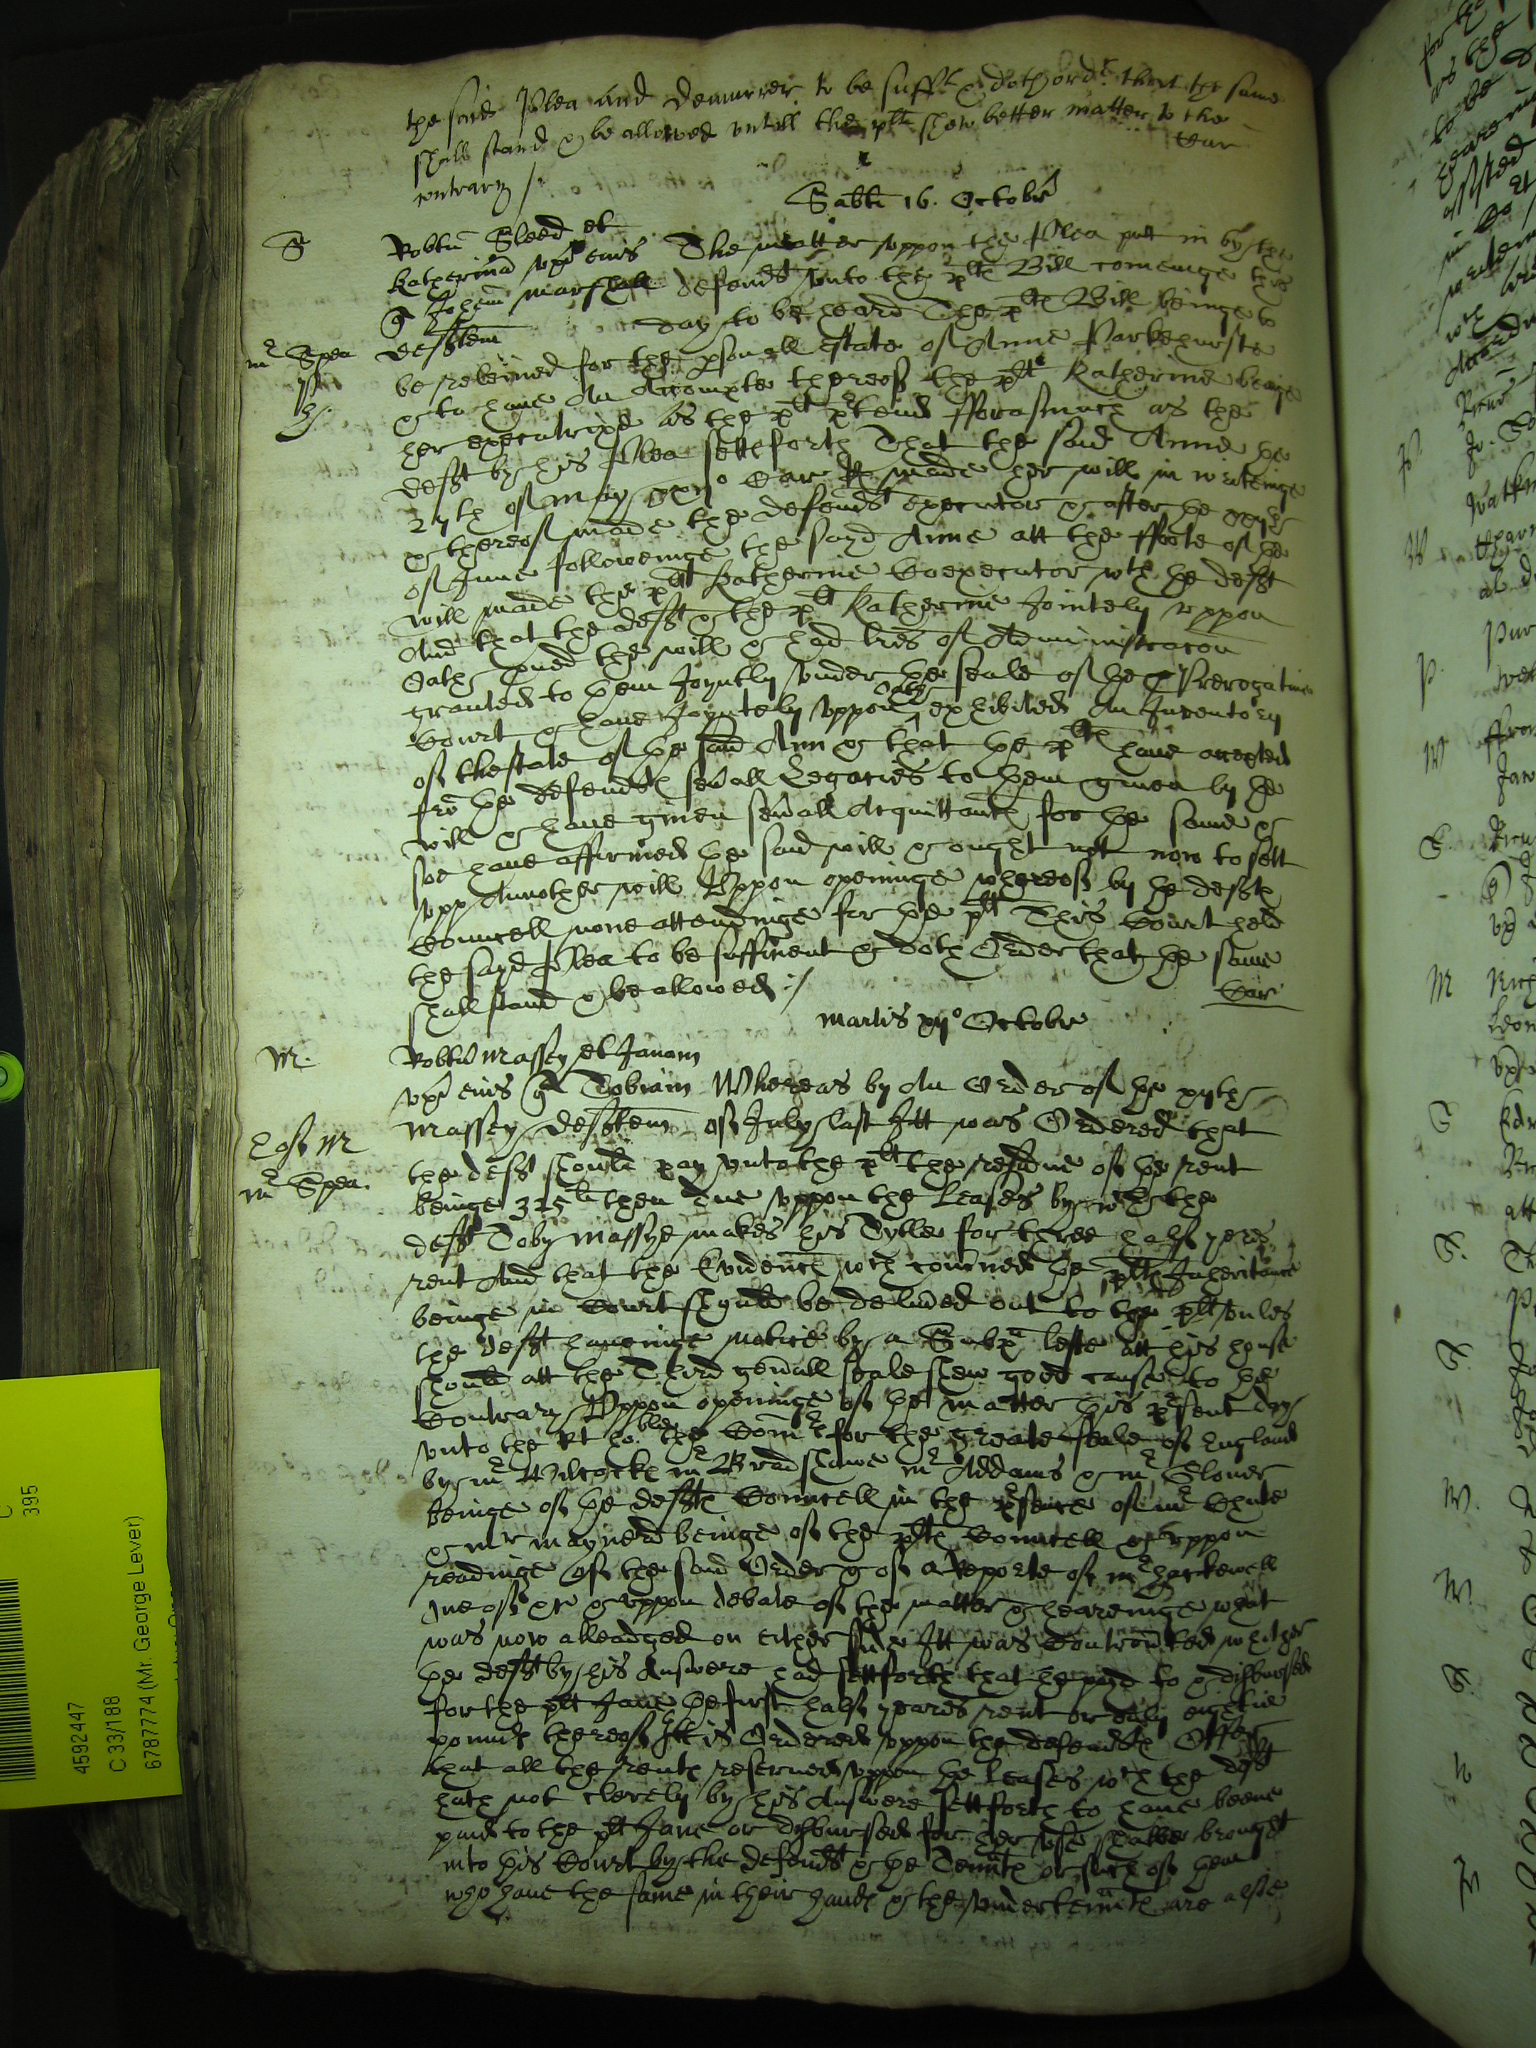 the said Plea and demurrer to be suff[t] & doth ord[r] that the same
shall stand & be allowed untill the pl[t] shew better matter to the
contrary /
Sabti 16. Octobr
S
Robtu Sleed et
Katherina uxr eius The matter uppon the Plea put in by the
Johem Marshall defend[t] unto the pl[ts] Bill cominge this
deft[em] day to be heard The pl[ts] Bill beinge to
m[r] Spea
be releived for the psonall estate of Anne Parkehurste
& to have An Accompte thereof the pl[t] Katherine beinge
her executrixe as the pl[t] p[r]tends fforasmuch as the
deft by his Plea setts forth That the said Anne the
27th of May Car R made her will in writeinge
& thereof made the defend[t] executor & after the
of June followeinge the sayd Anne att the ffoote of the
will made the pl[t] Katherine Coexecutor w[th] the deft
And that the deft & the pl[t] Katherine Jointely uppon
Oath pved the will & had lres of Administracon
granted to them Joyntly under the seale of the Prerogative
Court & have Joyntely uppon Oath exhibited An Inventory
of thestate of the said Ann & that the pl[ts] have accepted
fro the defend[ts] sevall Legacies to them given by the
will & have given sevall Acquittanc[es] for the same &
soe have affirmed the said will & ought not now to sett
upp Annother will Uppon openinge whereof by the defts
Councell none attendinge for the pl[t] This Court held
the sayd Plea to be sufficient & doth Order that the same
shall stand & be allowed /
Martis Octobr
M.
Robtu Massey et Janam
uxr eius Tobiam Whereas by An Order of the
Massey deft[em] of July last Itt was Ordered that
m[r] Spea.
the deft should pay unto the pl[t] the residue of the rent
beinge 325[li] then due uppon the Leases by w[ch] the
deft Toby Massye makes his Tytle for three half yeres
rent And that the Evidenc[es] w[ch] concned the pl[ts] Inheritance
beinge in Court should be delived out to the pl[t] unles
the deft haveinge notice by a Subp[a] lefte att his house
should att the Third genall seale shew good cause to the
Contrary Uppon openinge of the matter this p[r]sent day
unto the Rt ho[ble] the Com[rs] for the greate seale of England
by m[r] Wilcocks m[r] Bradshawe m[r] Addams & m[r] Glover
beinge of the defts Councell in the p[r]sence of m[r] Chute
& mr Maynerd beinge of the pl[ts] Councell & uppon
readinge of the said Order & of a Reporte of m[r] Hackewell
one of &c & uppon debate of the matter & heareinge what
was now alleadged on either side Itt was Controverted whither
the deft by his Answere had settforth that he payd to & disbursed
for the pl[t] Jane the first half yeares rent or only
pounds thereof Itt is Ordered uppon the defend[ts] Offer
that all the rents reserved uppon the Leases w[ch] the deft
hath not clerely by his Answere settforth to have beene
paid to the pl[t] Jane or disbursed for her use shalbe brought
into this Court by the defend[t] & the Tennts or such of them
who have the same in their hands & the undertennts are alsoe
4592447
C 33/188
6787774 (Mr. George Lever)
C
395